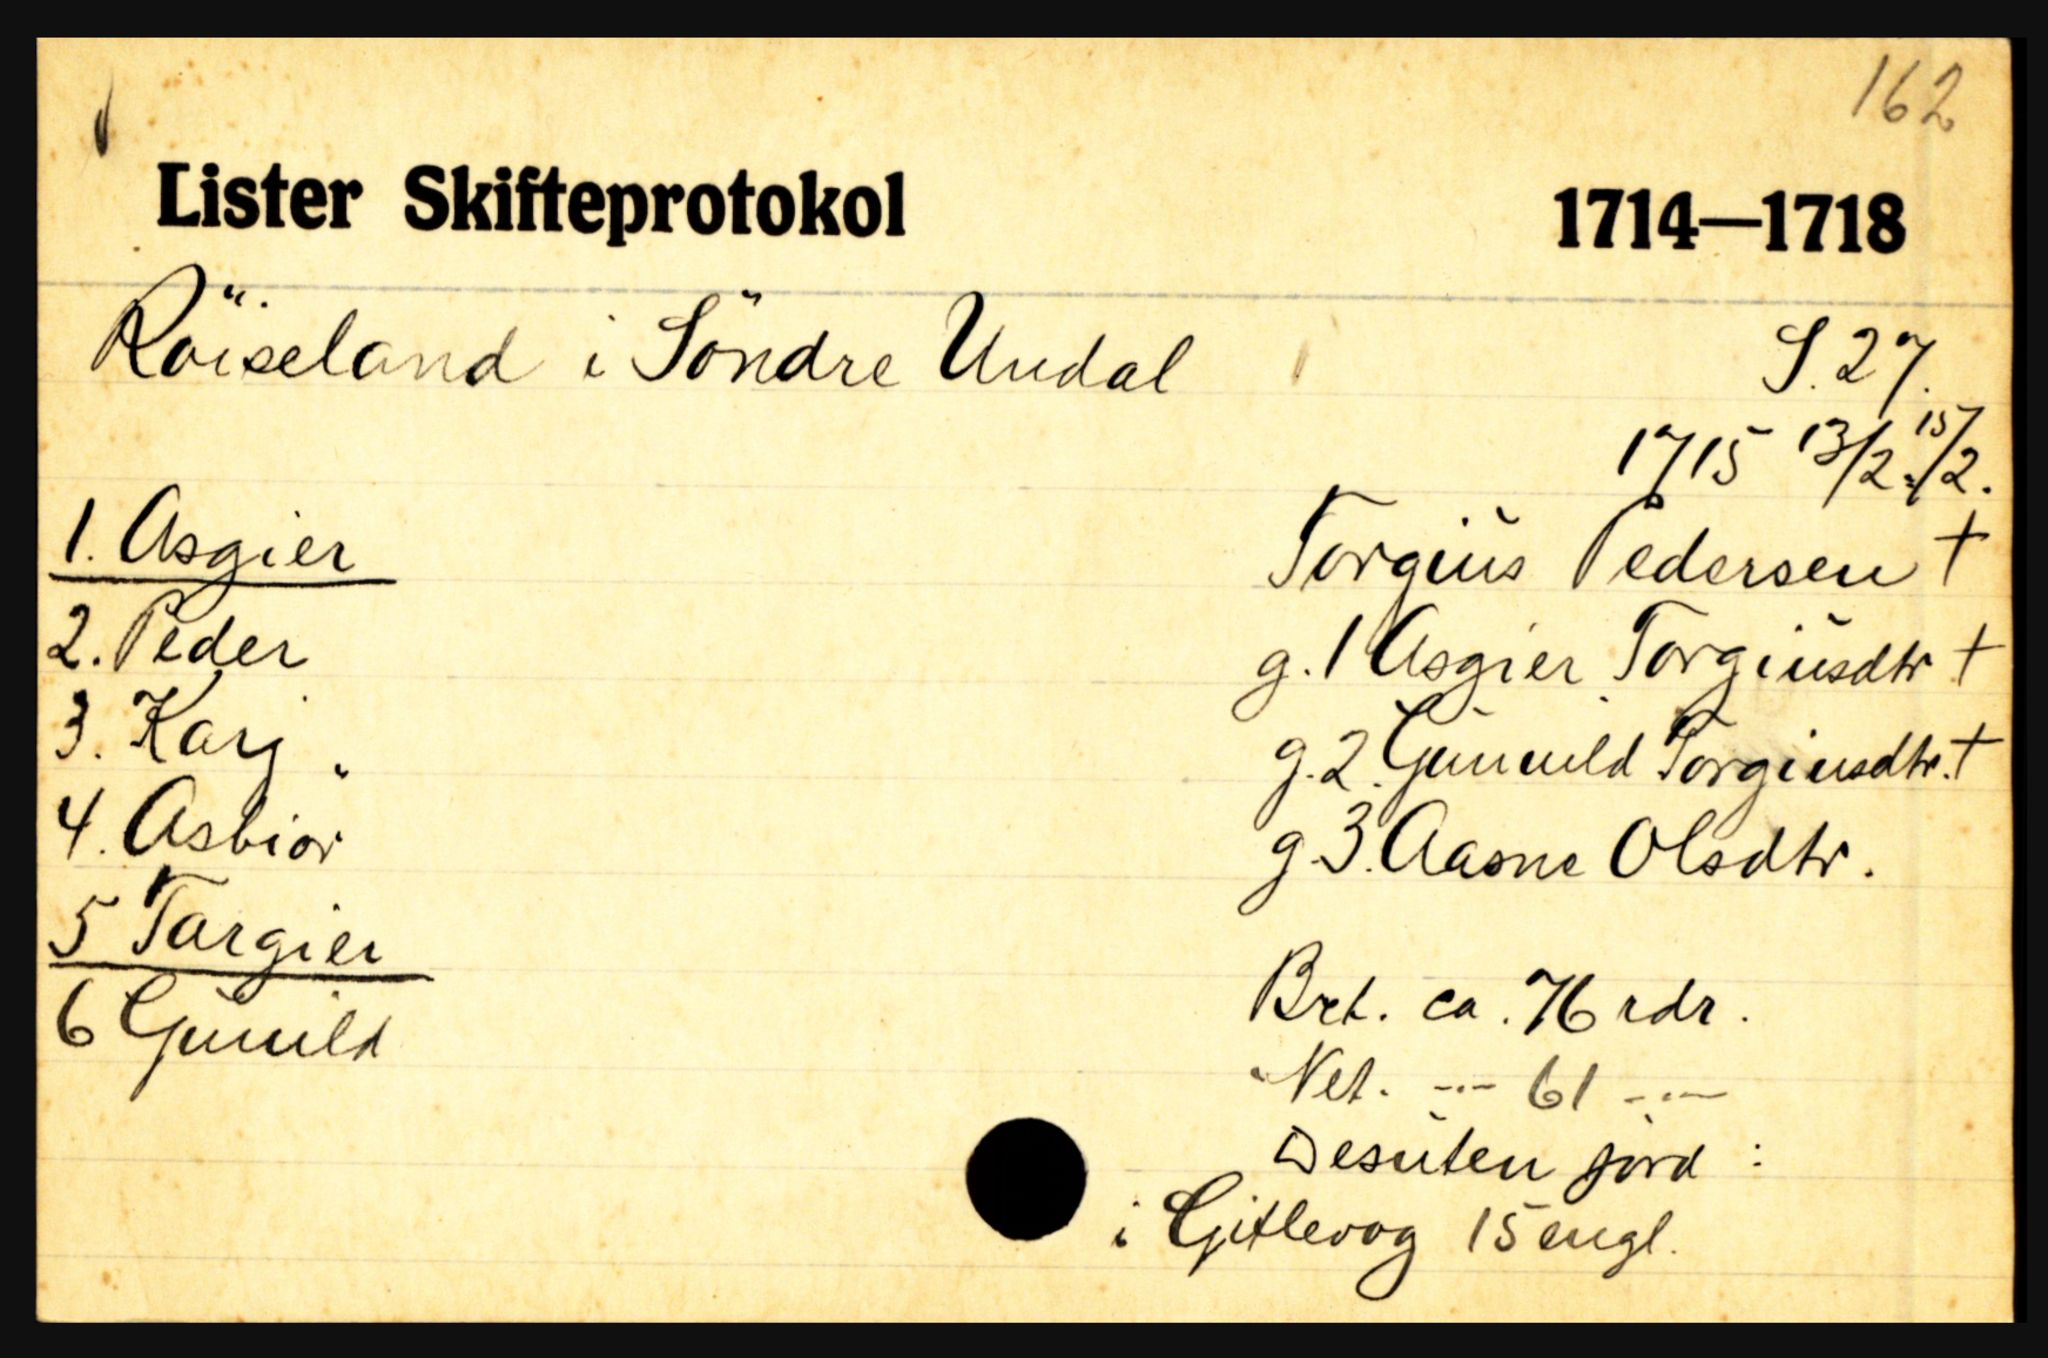 162
Lister Skifteprotokol 1714—1718
Röiseland i Söndre Undal S. 27.
1715 13/2. 15/2.
Torgius Pedersen +
g. 1 Asgier Torgiusdtr +
g. 2. Gunuild Torgiusdtr. +
g. 3. Aasne Olsdtr.
1. Asgier
2. Peder
3. Karj
4. Asbior
5 Targier
6 Gunild
Brt. ca. 76 rdr.
Net. -"- 61 -"-
Desuten jord :
i Gitlevog 15 engl.